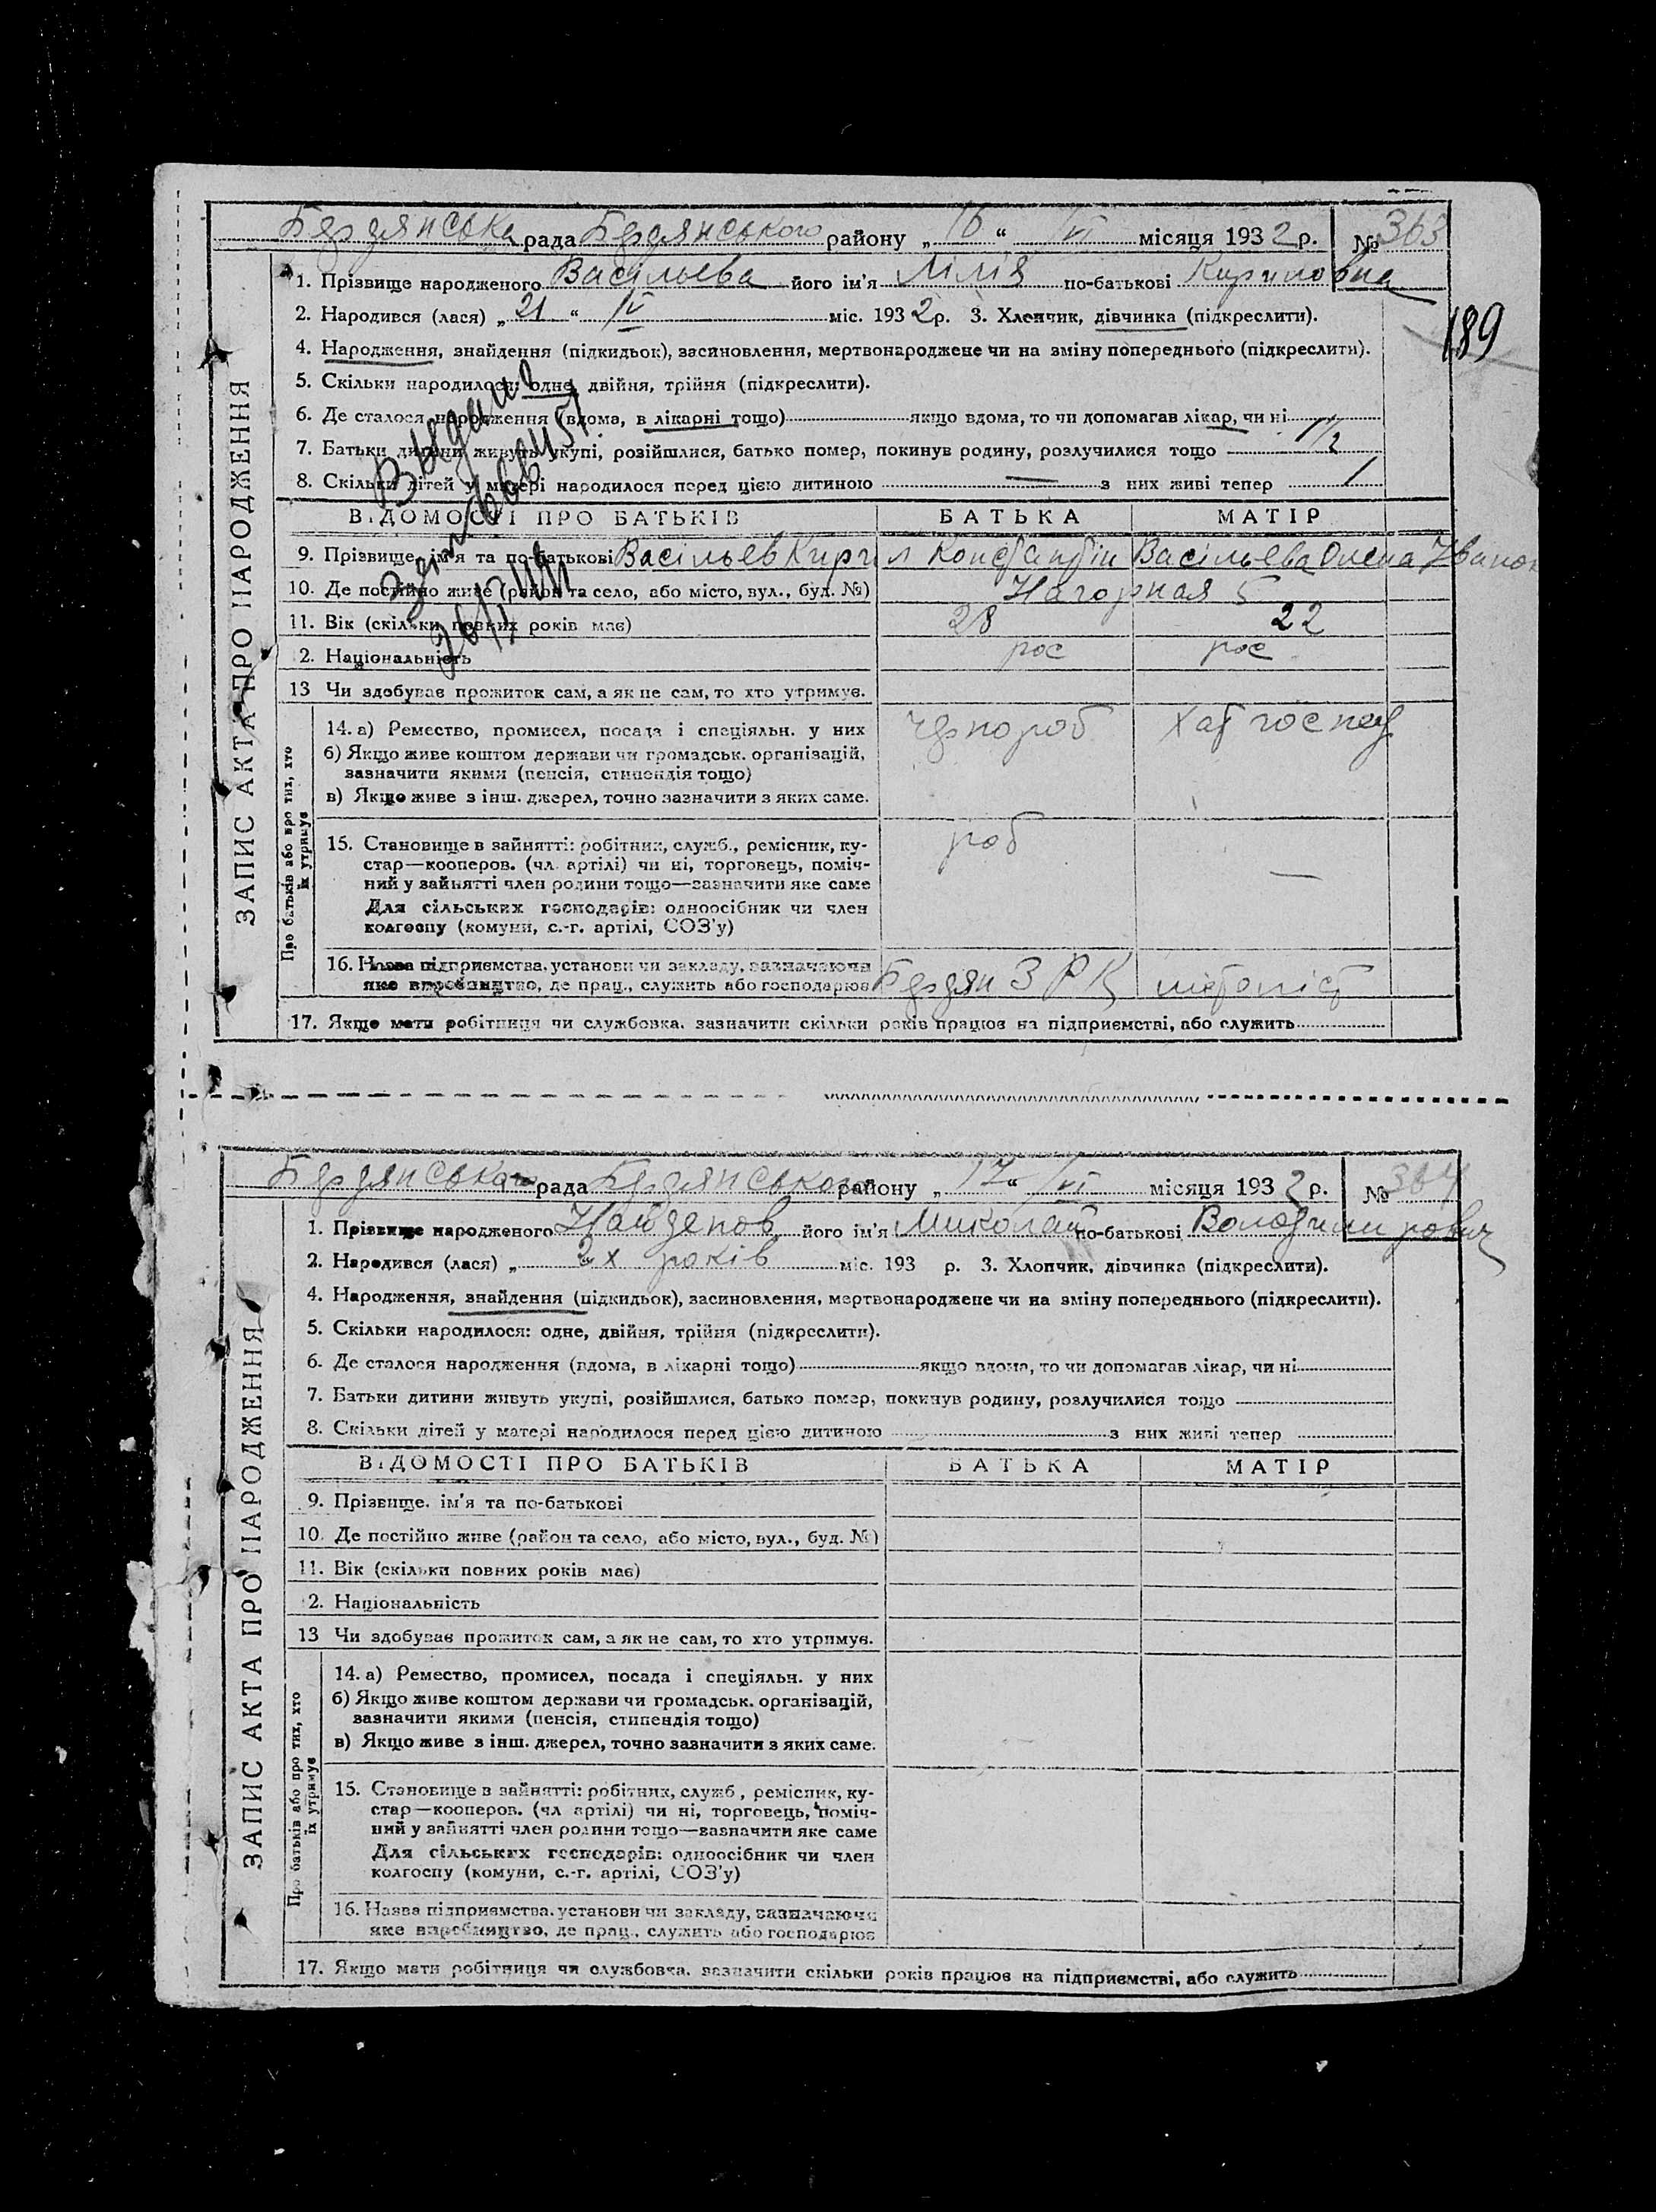 Бердянська рада Бердянського району „16“ VI місяця 1932 р. № 363
1. Прізвище народженого Васільєва його ім'я Лілія по-батькові Кириловна
2. Народився (лася) „21“ IV міс. 1932 р. 3. Хлопчик, дівчинка (підкреслити).
189
4. Народження, знайдення (підкидьок), засиновлення, мертвонароджене чи на зміну попереднього (підкреслити).
5. Скільки народилося: одне, двійня, трійня (підкреслити).
6. Де сталося народження (вдома, в лікарні тощо) якщо вдома, то чи допомагав лікар, чи ні
7. Батьки дитини живуть укупі, розійшлися, батько помер, покинув родину, розлучилися тощо
8. Скільки дітей у матері народилося перед цією дитиною — з них живі тепер
ВІДОМОСТІ ПРО БАТЬКІВ БАТЬКА МАТІР
9. Прізвище, ім'я та по-батькові Васільєв Кирил Константін Васільєва Олена Іванов
10. Де постійно живе (район та село, або місто, вул., буд. №) Нагорная 5
11. Вік (скільки повних років має) 28 22
2. Національність рос рос
13 Чи здобуває прожиток сам, а як не сам, то хто утримує.
14. а) Ремество, промисел, посада і спеціяльн. у них чорнороб хат господ
б) Якщо живе коштом держави чи громадськ. організацій,
зазначити якими (пенсія, стипендія тощо)
в) Якщо живе з інш. джерел, точно зазначити з яких саме.
15. Становище в зайнятті: робітник, служб., ремісник, ку-
стар—кооперов. (чл. артілі) чи ні, торговець, поміч-
ний у зайнятті член родини тощо—зазначити яке саме роб —
Для сільських господарів: одноосібник чи член
колгоспу (комуни, с.-г. артілі, СОЗ'у)
16. Назва підприємства, установи чи закладу, зазначаючи
яке виробництво, де прац., служить або господарює Бердян З Р К
17. Якщо мати робітниця чи службовка, зазначити скільки років працює на підприємстві, або служить
ЗАПИС АКТА ПРО НАРОДЖЕННЯ
Про батьків або про тих, хто
їх утримує
Бердянського рада Бердянського району „17“ VI місяця 1932 р. № 364
1. Прізвище народженого Найденов його ім'я Миколай по-батькові Володимирович
2. Народився (лася) „ 2х років міс. 193 р. 3. Хлопчик, дівчинка (підкреслити).
4. Народження, знайдення (підкидьок), засиновлення, мертвонароджене чи на зміну попереднього (підкреслити).
5. Скільки народилося: одне, двійня, трійня (підкреслити).
6. Де сталося народження (вдома, в лікарні тощо) якщо вдома, то чи допомагав лікар, чи ні
7. Батьки дитини живуть укупі, розійшлися, батько помер, покинув родину, розлучилися тощо
8. Скільки дітей у матері народилося перед цією дитиною з них живі тепер
ВІДОМОСТІ ПРО БАТЬКІВ БАТЬКА МАТІР
9. Прізвище, ім'я та по-батькові
10. Де постійно живе (район та село, або місто, вул., буд. №)
11. Вік (скільки повних років має)
2. Національність
13 Чи здобуває прожиток сам, а як не сам, то хто утримує.
14. а) Ремество, промисел, посада і спеціяльн. у них
б) Якщо живе коштом держави чи громадськ. організацій,
зазначити якими (пенсія, стипендія тощо)
в) Якщо живе з інш. джерел, точно зазначити з яких саме.
15. Становище в зайнятті: робітник, служб., ремісник, ку-
стар—кооперов. (чл артілі) чи ні, торговець, поміч-
ний у зайнятті член родини тощо—зазначити яке саме
Для сільських господарів: одноосібник чи член
колгоспу (комуни, с.-г. артілі, СОЗ'у)
16. Назва підприємства, установи чи закладу, зазначаючи
яке виробництво, де прац., служить або господарює
17. Якщо мати робітниця чи службовка, зазначити скільки років працює на підприємстві, або служить
ЗАПИС АКТА ПРО НАРОДЖЕННЯ
Про батьків або про тих, хто
їх утримує